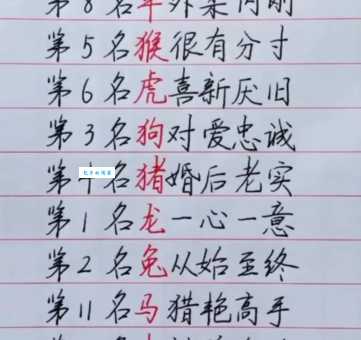 第8名羊外柔内刚
第5名猴很有分寸
第6名虎喜新厌旧
第3名狗对爱忠诚
第十名猪婚后老实
第1名龙一心一意
第2名兔从始至终
第11名马猎艳高手